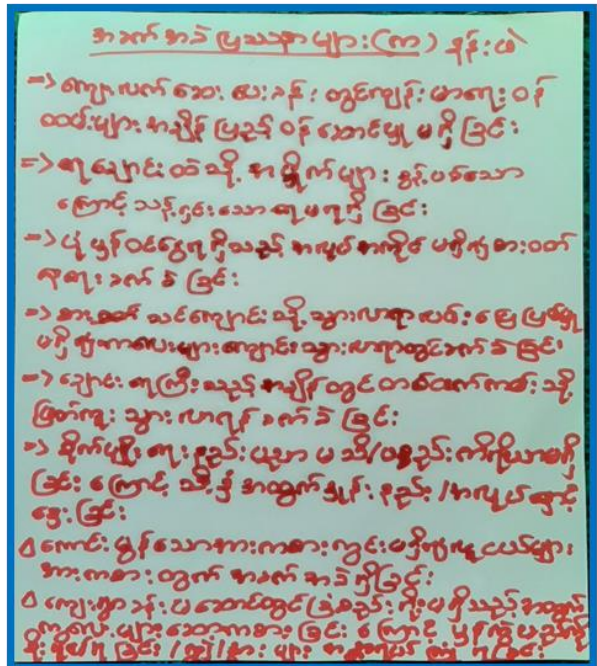 အခက်အခဲပြဿနာများ(က) ရန်းဖဲ
=> ကျေးလက်ဆေးပေးခန်းတွင်ကျန်းမာရေးဝန်
ထမ်းများအချိန်ပြည့်ဝန်ဆောင်မှုမရှိခြင်း
=> ရေချောင်းထဲသို့အမှိုက်များစွန့်ပစ်သော
ကြောင့်သန့်ရှင်းသောရေမရရှိခြင်း
=> ပုံမှန်ဝင်ငွေရရှိသည့်အလုပ်အကိုင်မရှိ၍စားဝတ်
နေရေးခက်ခဲခြင်း
=> စာသင်ကျောင်းသို့သွားလာရာလမ်းဖြေဖြစ်မှု
မရှိ၍ကလေးများကျောင်းသွားလာရာတွင်ခက်ခဲခြင်း
=> ချောင်းရေကြီးသည့်အချိန်တွင်တစ်ဖက်ကမ်းသို့
ဖြတ်ကူးသွားလာရန်ခက်ခဲခြင်း
=> စိုက်ပျိုးရေးနည်းပညာမသိ/ပစ္စည်းကိရိယာမရှိ
ခြင်းကြောင့်သီးနှံအထွက်နှုန်းနည်း/အလုပ်နှောင့်
နှေးခြင်း
△ ကောင်းမွန်သောအားကစားကွင်းမရှိ၍လူငယ်များ
အားကစားတွက်အခက်အခဲရှိခြင်း
△ ကျေးရွာခန်းမဆောင်တွင်ခြံစည်းရိုးမရှိသည့်အတွက်
ကလေးများဆော့ကစားခြင်းကြောင့်မှန်ကွဲ